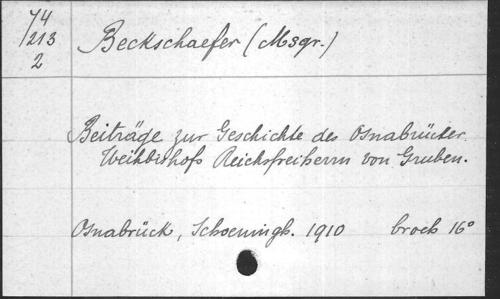 74
/213
2
Beckschaefer (Msgr.)
Beiträge zur Geschichte des Osnabrücker
Weihbischofs Reichsfreiherrn von Gruben.
Osnabrück, Schoeningh. 1910 broch 16°